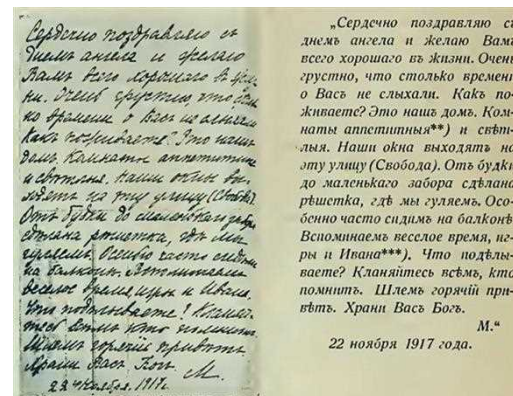 Сердечно поздравляю съ
днемъ ангела и желаю
Вамъ всего хорошаго въ жиз-
ни. Очень грустно, что столь-
ко времени о Васъ не слыхали.
Какъ поживаете? Это нашъ
домъ. Комнаты аппетитныя
и свѣтлыя. Наши окны вы-
ходятъ на эту улицу (Свобода).
Отъ будки до маленькаго забора
сдѣлана рѣшетка, гдѣ мы
гуляемъ. Особенно часто сидимъ
на балконѣ. Вспоминаемъ
веселое время, игры и Ивана.
Что подѣлываете? Кланяй-
тесь всѣмъ кто помнитъ.
Шлемъ горячій привѣтъ.
Храни Васъ Богъ.
М.
22 ноября. 1917 г.
„Сердечно поздравляю съ
днемъ ангела и желаю Вамъ
всего хорошаго въ жизни. Очень
грустно, что столько времени
о Васъ не слыхали. Какъ по-
живаете? Это нашъ домъ. Ком-
наты аппетитныя**) и свѣт-
лыя. Наши окна выходятъ на
эту улицу (Свобода). Отъ будки
до маленькаго забора сдѣлана
рѣшетка, гдѣ мы гуляемъ. Осо-
бенно часто сидимъ на балконѣ.
Вспоминаемъ веселое время, иг-
ры и Ивана***). Что подѣлы-
ваете? Кланяйтесь всѣмъ, кто
помнитъ. Шлемъ горячій при-
вѣтъ. Храни Васъ Богъ.
М.“
22 ноября 1917 года.